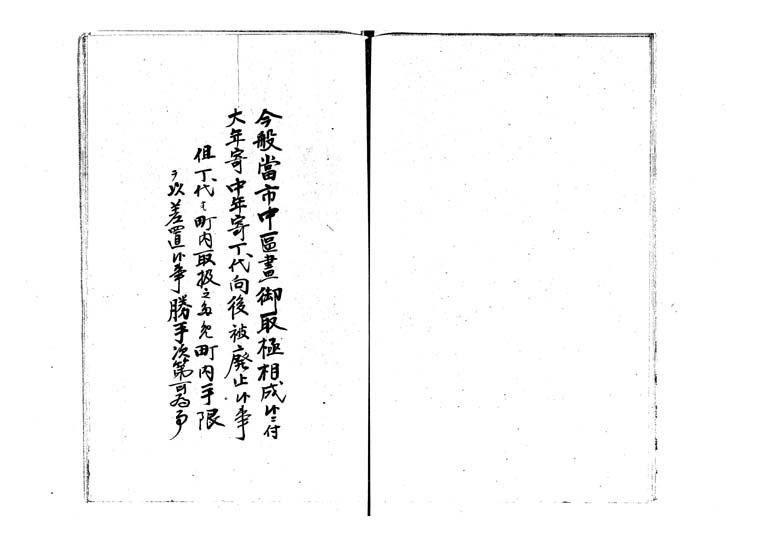 今般當市中區畫御取極相成候ニ付
大年寄中年寄丁代向後被廢止候事
但丁代ハ町内取扱之為〆町内手限
ヲ以差置候事勝手次第可為事